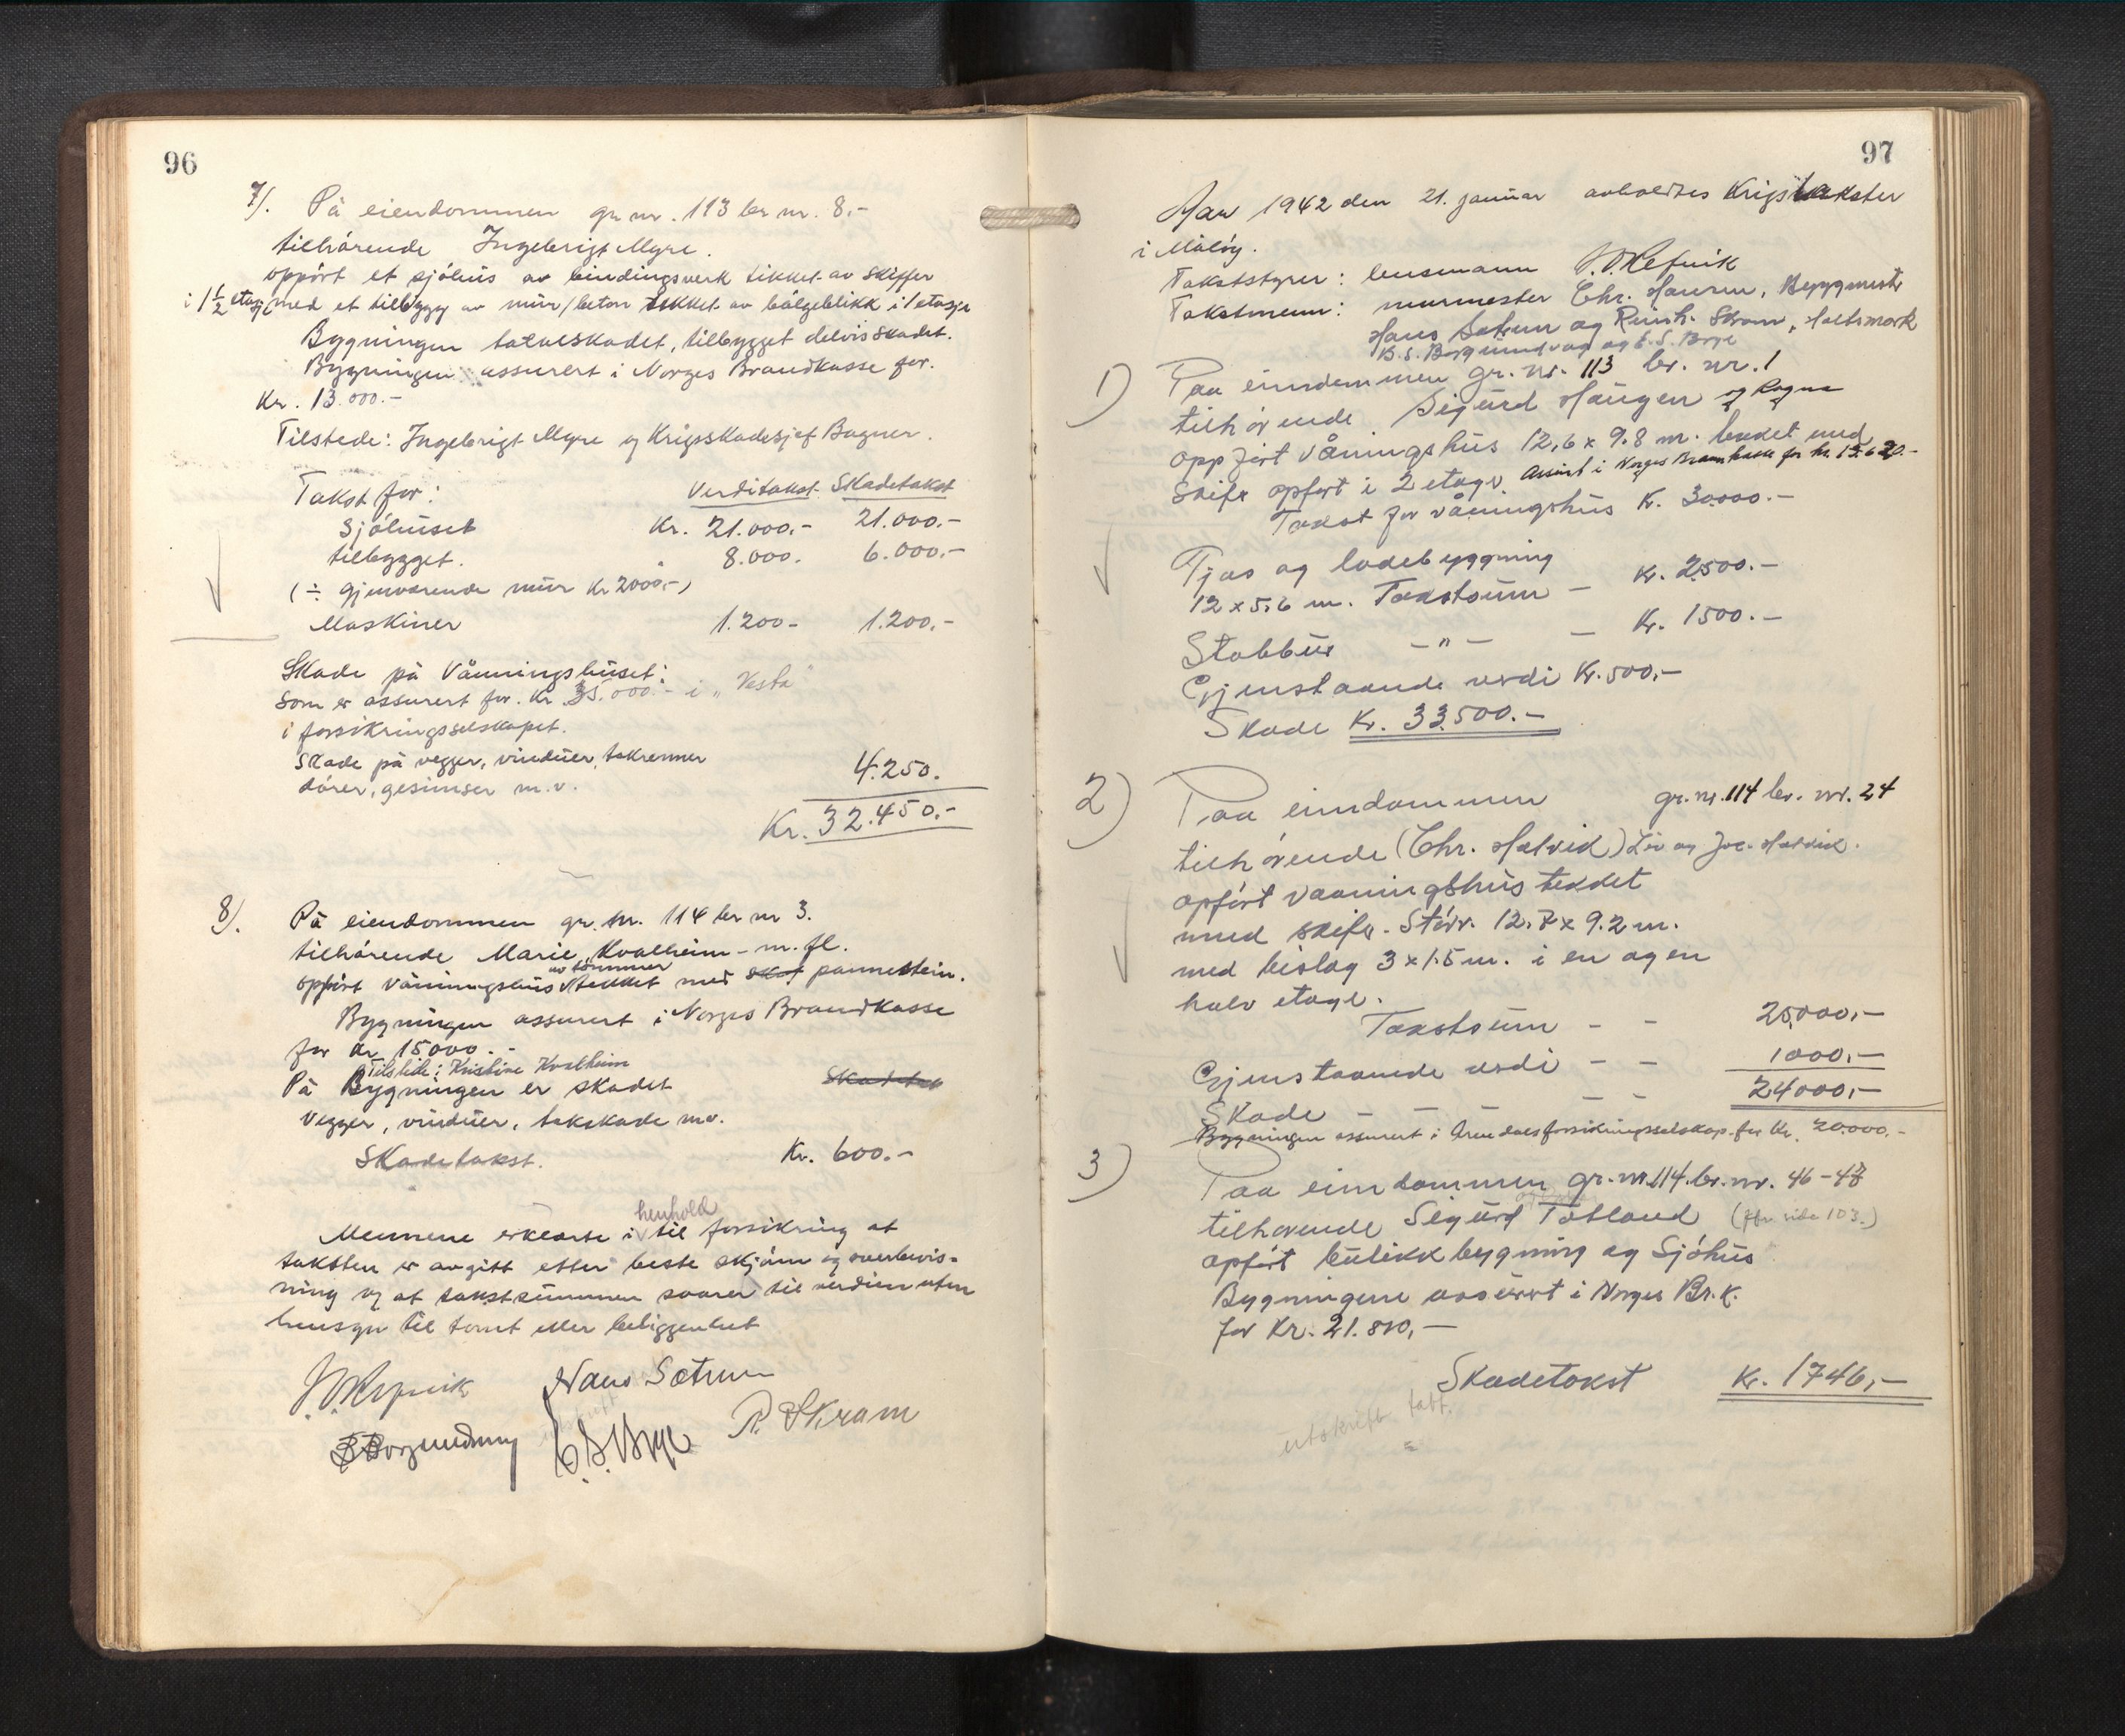 96
7/. På eiendommen gr. nr. 113 br nr. 8.-
tilhørende Ingebrigt Myre.
oppört et sjöhus av bindingsverk tekket av skiffer
i 1 1/2 etasje med et tilbygg av mur/beton tekket av bölgeblikk i 1 etasje
Bygningen totalskadet, tilbygget delvis skadet.
Bygningen assurert i Norges Brandkasse for.
Kr. 13.000.-
Tilstede: Ingebrigt Myre og Krigsskadesjef Bugner.
Takst for: Verditakst. Skadetakst
Sjöhuset Kr. 21.000.- 21.000.-
tilbygget. " 8.000. 6.000.-
(÷ gjenværende mur Kr 2000.-)
Maskiner 1.200- 1.200.-
Skade på Våningshuset:
som er assurert for. Kr. 35.000.- i „Vesta"
i forsikringsselskapet.
Skade på vegger, vinduer, takrenner
dörer, gesimser m.v. 4.250.
Kr. 32.450.-
8/. På eiendommen gr. nr. 114 br nr 3.
tilhörende Marie Kvalheim - m. fl.
av tömmer
oppfört våningshus tekket med pannestein.
Bygningen assurert i Norges Brandkasse
for kr 15000.-
Tilstede: Kristine Kvalheim
På Bygningen er skadet Skadetak
vegger, vinduer, takskade mv.
Skadetakst. Kr. 600.-
henhold
Mennene erklærte i til forsikring at
taksten er avgitt efter beste skjönn og overbevis-
ning og at takstsummen svarer til verdien uten
hensyn til tomt eller beliggenhet
Hans Sætren
R. Skram
97
Aar 1942 den 21. januar avholdtes Krigstakster
i Måløy.
Takststyrer: lensmann J. O. Refvik
Takstmenn: murmester Chr. Hansen, Byggmestr
Hans Sætren og Reinh. Skram, Holtsmark
B. S. Borgundvåg og
1) Paa eiendommen gr. nr. 113 br. nr. 1
tilhörende Sigurd Haugen og Ragna
oppfört våningshus 12,6 x 9.8 m. tekket med
skifr opfört i 2 etage. Assurt i Norges Brannkasse for kr. 13.620.-
Takst for våningshus Kr. 30000.-
Fjøs og ladebyggning
12 x 5,6 m. Takstsum - Kr. 2500.-
Stabbur - " - - Kr. 1500.-
Gjenstaaende verdi Kr. 500,-
Skade Kr. 33500.-
2) Paa eiendommen gr. nr. 114 br. nr. 24
tilhörende (Chr. Halvik) Liv og Joe. Halvik.
opfört vaaningshus tekket
med skifr. Störr. 12.7 x 9.2 m.
med bislag 3 x 1.5 m. i en og en
halv etage.
Takstsum - - 25000,-
Gjenstaaende verdi - - 1000,-
Skade - - - - 24000,-
Bygningen assurert i Arendalsforsikringsselskap for kr. 20.000.-
3) Paa eiendommen gr. nr. 114. br. nr. 46-47
tilhørende Sigurd Totland (jfr side 103.)
opfört butikkbygning og Sjöhus
Bygningene assurert i Norges Br. K.
for Kr. 21.810,-
Skadetakst Kr. 1746,-
utskrift tatt.